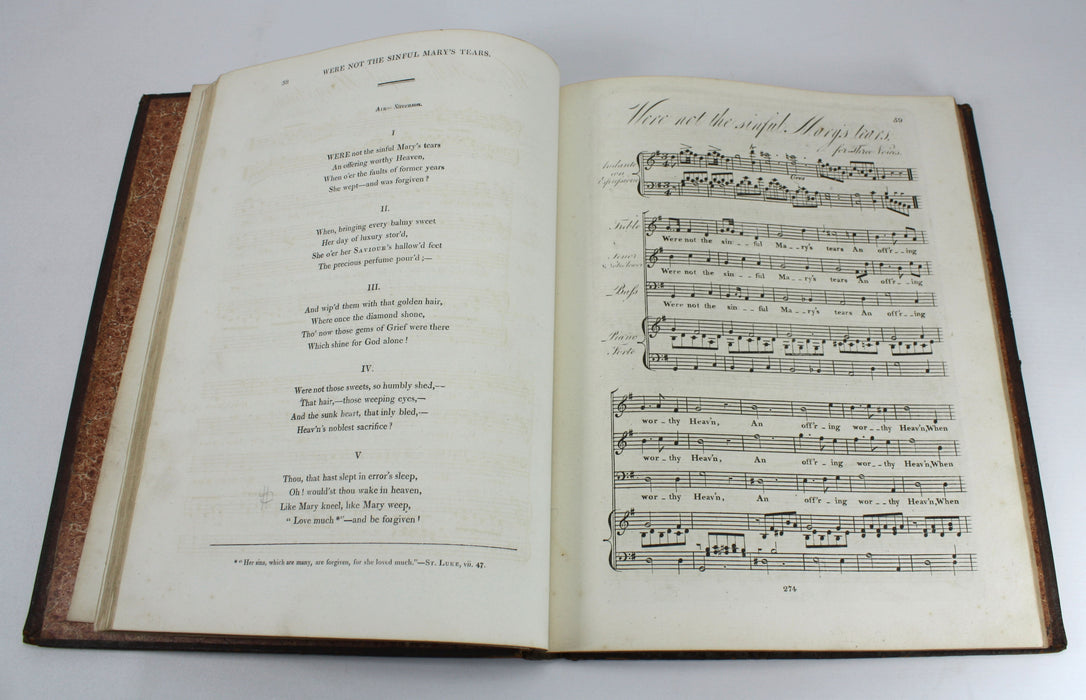 58
WERE NOT THE SINFUL MARY'S TEARS.
AIR—Stevenson.
I
WERE not the sinful Mary's tears
An offering worthy Heaven,
When o'er the faults of former years
She wept—and was forgiven?
II.
When, bringing every balmy sweet
Her day of luxury stor'd,
She o'er her SAVIOUR'S hallow'd feet
The precious perfume pour'd;—
III.
And wip'd them with that golden hair,
Where once the diamond shone,
Tho' now those gems of Grief were there
Which shine for God alone!
IV.
Were not those sweets, so humbly shed,--
That hair,—those weeping eyes,—
And the sunk heart, that inly bled,—
Heav'n's noblest sacrifice?
V
Thou, that hast slept in error's sleep,
Oh! would'st thou wake in heaven,
Like Mary kneel, like Mary weep,
"Love much *"—and be forgiven!
*"Her sins, which are many, are forgiven, for she loved much."—ST. LUKE, vii. 47.
59
Were not the sinful Mary's tears,
for three Voices.
Andante
con
Espressione
Cres
Treble
Were not the sin--ful Ma--ry's tears An off'ring
Tenor
Were not the sin--ful Ma--ry's tears An off'r--ing
Bass
Were not the sin--ful Ma--ry's tears An off'r--ing
Piano
Forte
wor-thy Heav'n, An off'r-ing wor--thy Heav'n, When
wor-thy Heav'n, An off'r-ing wor--thy Heav'n, When
wor-thy Heav'n, An off'r-ing wor--thy Heav'n, When
274